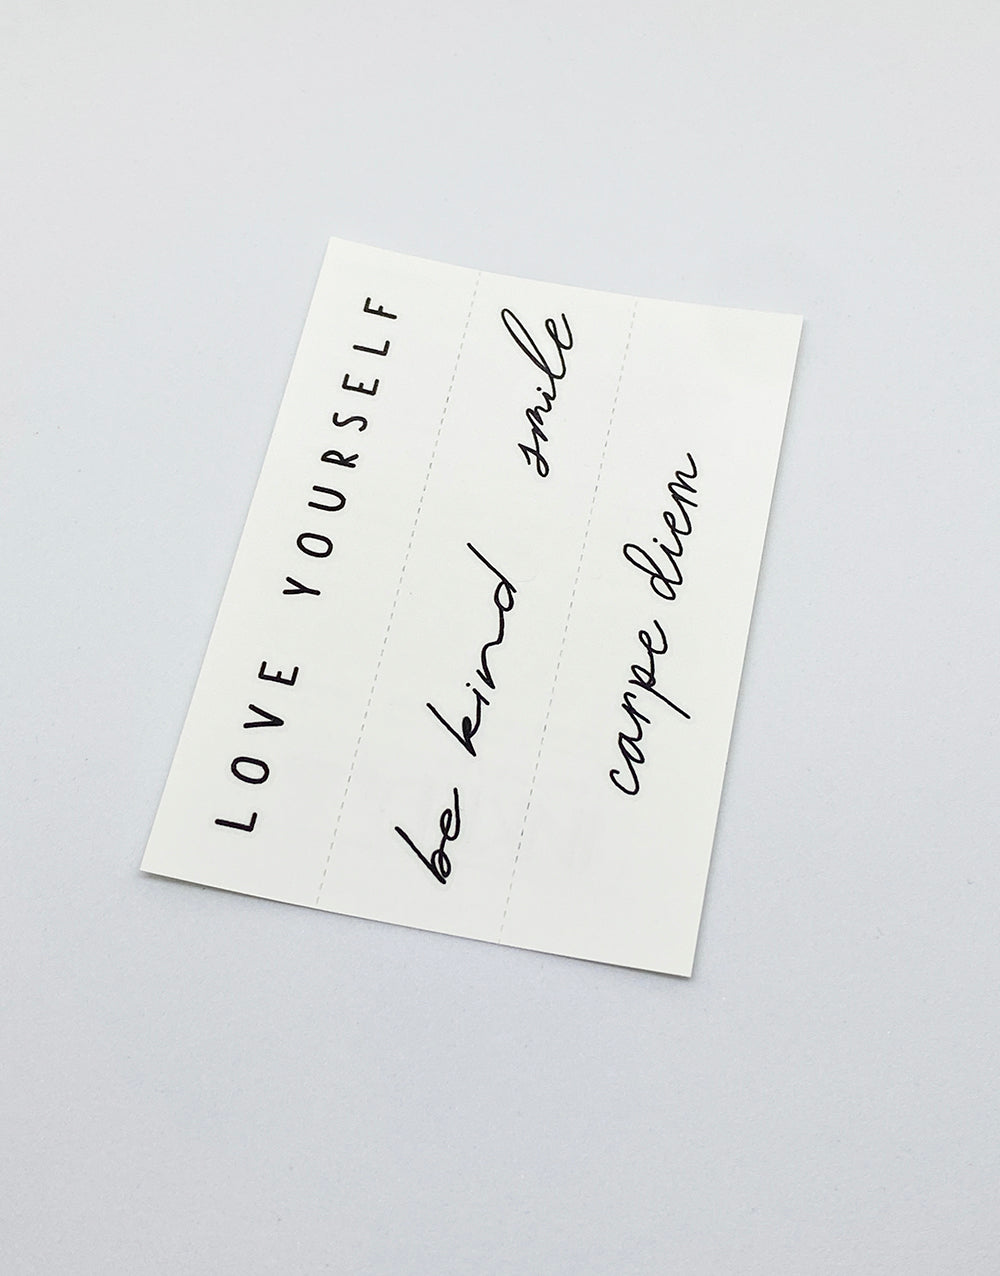 LOVE YOURSELF
be kind smile
carpe diem